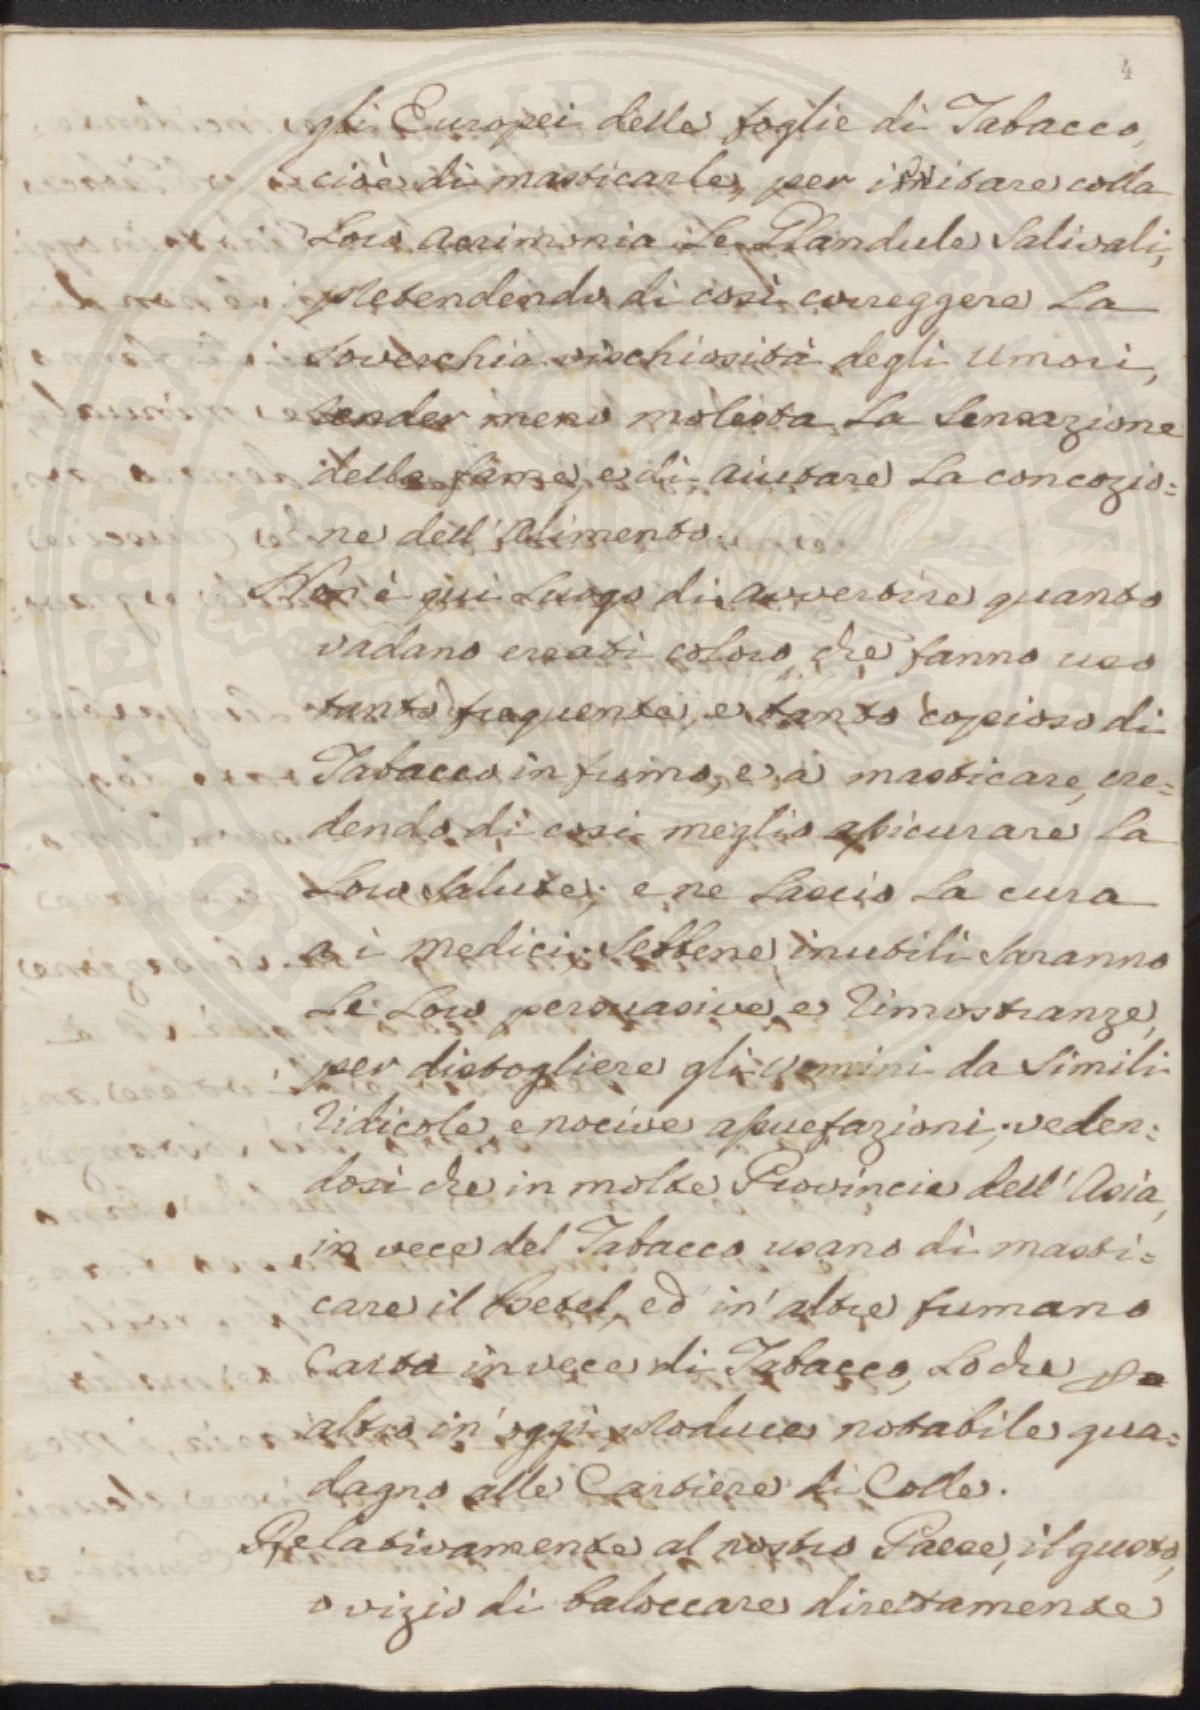 4
gli Europei delle foglie di Tabacco,
cioè di masticarle, per irritare colla
Loro acrimonia Le Glandule Salivali,
pretendendo di così correggere La
soverchia vischiosità degli Umori,
render meno molesta La Sensazione
della fame, e di aiutare La concozio=
ne dell'Alimento.
Non è qui Luogo di avvertire quanto
vadano errati coloro, che fanno uso
tanto frequente, e tanto copioso di
Tabacco in fumo, e a masticare, cre=
dendo di così meglio assicurare La
Loro Salute; e ne Lascio La cura
a i Medici; Sebbene inutili Saranno
Le Loro persuasive, e Rimostranze,
per distogliere gli uomini da Simili
Ridicole, e nocive assuefazioni; veden=
dosi che in molte Provincie dell'Asia,
in vece del Tabacco usano di masti=
care il Betel, ed in'altre fumano
Carta in vece di Tabacco, Lo che
altro in'oggi produce notabile gua=
dagno alle Cartiere di Colle.
Relativamente al nostro Paese, il gusto,
o vizio di baloccare direttamente